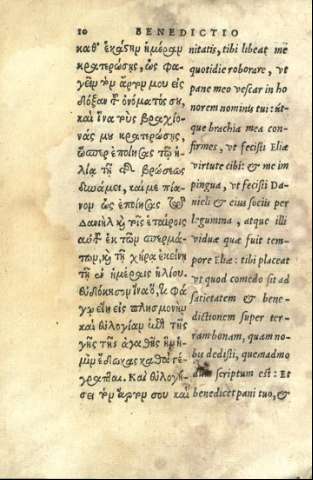 10 BENEDICTIO
καθ' ἑκάστην ἡμέραν
κρατερώσῃς, ὡς φα-
γεῖν τὸν ἄρτον μου εἰς
δόξαν τοῦ ὀνόματός σου,
καὶ ἵνα τοὺς βραχίο-
νάς μου κρατερώσῃς,
ὥσπερ ἐποίησας τῷ ἠ-
λίᾳ τῇ βρώσεως
δυνάμει, καὶ μὲ πία-
νον ὡς ἐποίησας τῷ
Δανιὴλ καὶ τοῖς ἑταίροις
αὐτοῦ ἐκ τῶν σπερμά-
των, καὶ τῇ χήρᾳ ἐκείνῃ
τῇ ἐν ἡμέραις ἠλίου.
εὐδόκησον ἵνα φά-
γω εἴη εἰς πλησμονὴν
καὶ εὐλογίαν ἐπὶ τῆς
γῆς τῆς ἀγαθῆς ἡ-
μῖν ἔδωκας καθὼς γέ-
γραπται. Καὶ εὐλογή-
σει τὸν ἄρτον σου καὶ
nitatis, tibi libeat me
quotidie roborare, vt
pane meo vescar in ho
norem nominis tui: út-
que brachia mea con-
firmes, vt fecisti Eliæ
virtute cibi: & me im
pingua, vt fecisti Da-
nieli & eius sociis per
legumina, atque illi
viduæ quæ fuit tem-
pore Eliæ: tibi placeat
vt quod comedo sit ad
satietatem & bene-
dictionem super ter-
ram bonam, quam no-
bis dedisti, quemadmo
dum scriptum est: Et
benedicet pani tuo, &